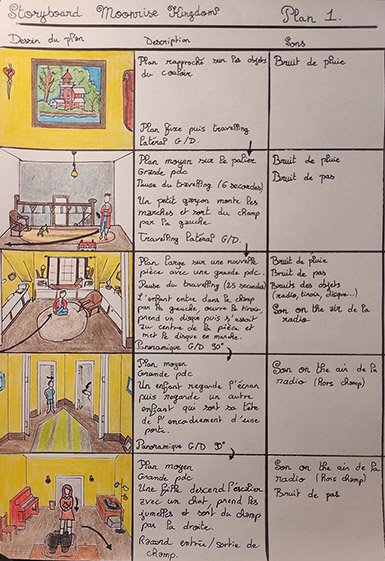 Storyboard Moonrise Kingdom
Plan 1.
Dessin du plan
Description
Sons
Plan rapproché sur les objets
du couloir
Plan fixe puis travelling
latéral G/D.
Bruit de pluie
Plan moyen sur le palier
Grande pdc
Pause du travelling (6 secondes)
Un petit garçon monte les
marches et sort du champ
par la gauche.
Travelling latéral G/D.
Bruit de pluie
Bruit de pas
Plan large sur une nouvelle
pièce avec une grande pdc.
Pause du travelling (25 secondes)
L'enfant entre dans le champ
par la gauche, ouvre le tiroir,
prend un disque puis s'assoit
au centre de la pièce et
met le disque en marche.
Panoramique G/D 90°
Bruit de pluie
Bruit de pas
Bruits des objets
(radio, tiroir, disque...)
Son on the air de la
radio
Plan moyen
Grande pdc
Un enfant regarde l'écran
puis regarde un autre
enfant qui sort sa tête
de l'encadrement d'une
porte.
Panoramique G/D
Son on the air de la
radio (Hors champ)
Plan moyen
Grande pdc
Une fille descend l'escalier
avec un chat, prend les
jumelles et sort du champ
par la droite.
Raccord entrée/sortie de
champ.
Son on the air de la
radio (Hors champ)
Bruit de pas